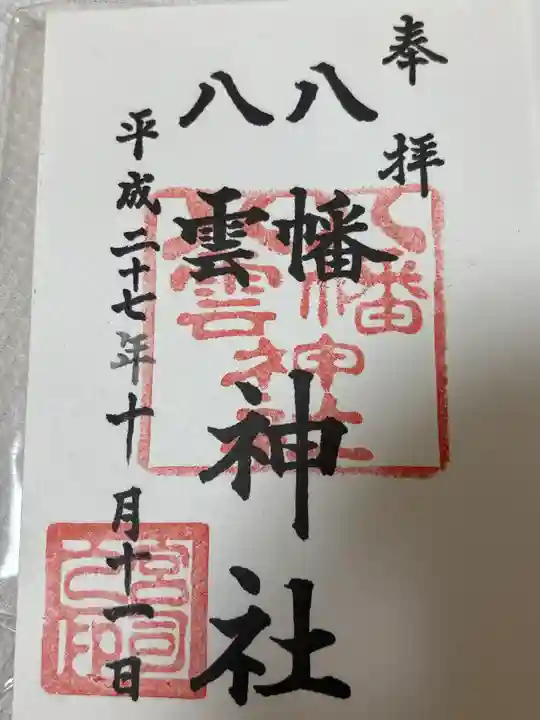 奉拝
八幡
八雲
神社
平成二十七年十月十一日
八幡
八雲
神社
宮司之印